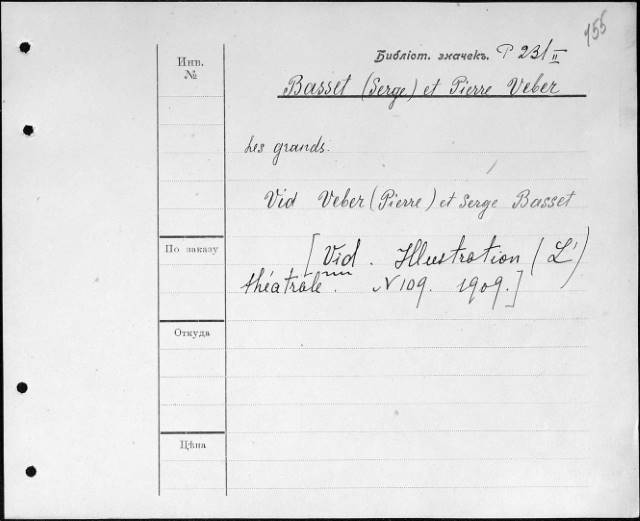 155
Библіот. значекъ. P 231 II
Инв. №
Basset (Serge) et Pierre Veber
Les grands.
Vid Veber (Pierre) et Serge Basset
По заказу
[Vid. Illustration (L')
théatrale. N 109. 1909.]
Откуда
Цѣна